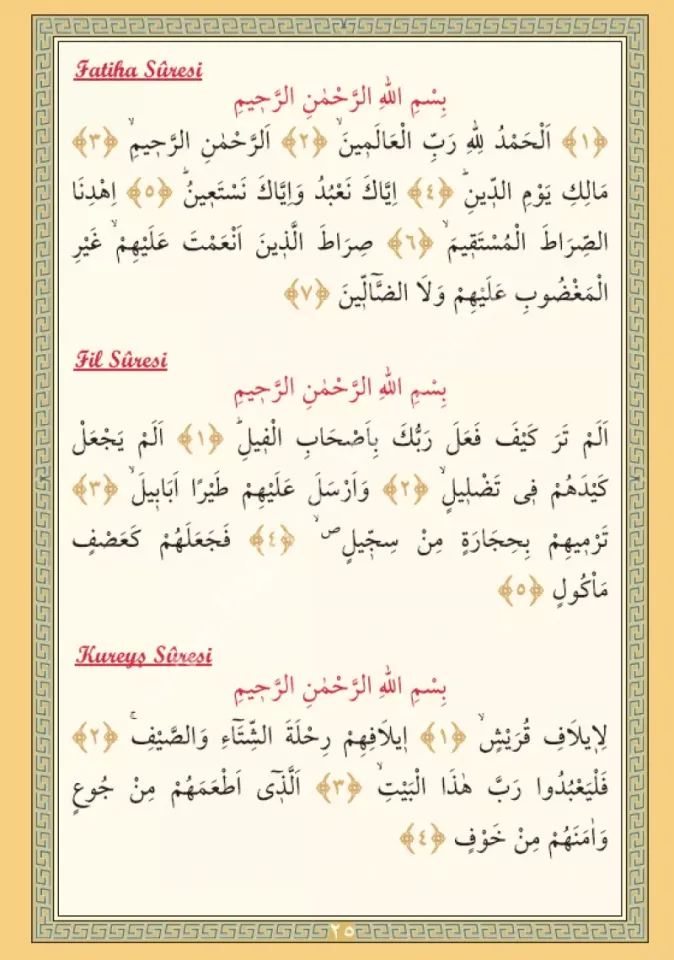 Fatiha Sûresi
بِسْمِ اللهِ الرَّحْمٰنِ الرَّحٖيمِ
﴿١﴾ اَلْحَمْدُ لِلّٰهِ رَبِّ الْعَالَمٖينَۙ ﴿٢﴾ اَلرَّحْمٰنِ الرَّحٖيمِۙ ﴿٣﴾
مَالِكِ يَوْمِ الدّٖينِؕ ﴿٤﴾ اِيَّاكَ نَعْبُدُ وَاِيَّاكَ نَسْتَعٖينُؕ ﴿٥﴾ اِهْدِنَا
الصِّرَاطَ الْمُسْتَقٖيمَۙ ﴿٦﴾ صِرَاطَ الَّذٖينَ اَنْعَمْتَ عَلَيْهِمْۙ غَيْرِ
الْمَغْضُوبِ عَلَيْهِمْ وَلَا الضَّٓالّٖينَ ﴿٧﴾
Fil Sûresi
بِسْمِ اللهِ الرَّحْمٰنِ الرَّحٖيمِ
اَلَمْ تَرَ كَيْفَ فَعَلَ رَبُّكَ بِاَصْحَابِ الْفٖيلِؕ ﴿١﴾ اَلَمْ يَجْعَلْ
كَيْدَهُمْ فٖى تَضْلٖيلٍۙ ﴿٢﴾ وَاَرْسَلَ عَلَيْهِمْ طَيْرًا اَبَابٖيلَۙ ﴿٣﴾
تَرْمٖيهِمْ بِحِجَارَةٍ مِنْ سِجّٖيلٍۙص ﴿٤﴾ فَجَعَلَهُمْ كَعَصْفٍ
مَاْكُولٍ ﴿٥﴾
Kureyş Sûresi
بِسْمِ اللهِ الرَّحْمٰنِ الرَّحٖيمِ
لِاٖيلَافِ قُرَيْشٍۙ ﴿١﴾ اٖيلَافِهِمْ رِحْلَةَ الشِّتَٓاءِ وَالصَّيْفِۚ ﴿٢﴾
فَلْيَعْبُدُوا رَبَّ هٰذَا الْبَيْتِۙ ﴿٣﴾ اَلَّذٖٓى اَطْعَمَهُمْ مِنْ جُوعٍ
وَاٰمَنَهُمْ مِنْ خَوْفٍ ﴿٤﴾
٢٥